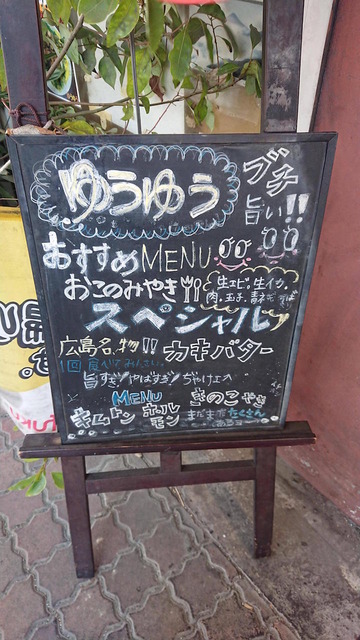 ゆうゆう
ブチ
旨い!!
おすすめMENU
おこのみやき
生エビ.生イカ.
肉.玉子.青ネギ.そば
スペシャル
広島名物!! カキバター
1回 食べてみんさい。
旨すぎ!やばすぎ!
MENU
キムトン ホルモン きのこやき
まだまだたくさん
あるヨー